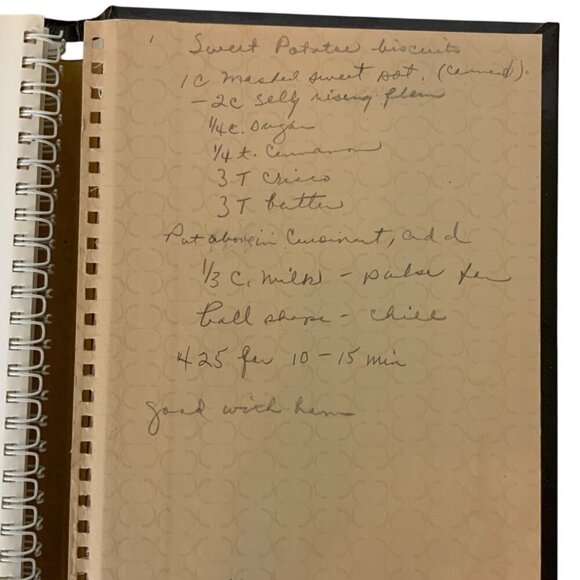 Sweet Potatoe biscuits
1c Mashed sweet pot. (canned).
- 2c self rising flour
1/4 c. sugar
1/4 t. Cinnamon
3 T Crisco
3 T butter
Put above in Cuisinart, add
1/3 C. milk - pulse for
ball shape - chill
425 for 10 - 15 min
good with ham